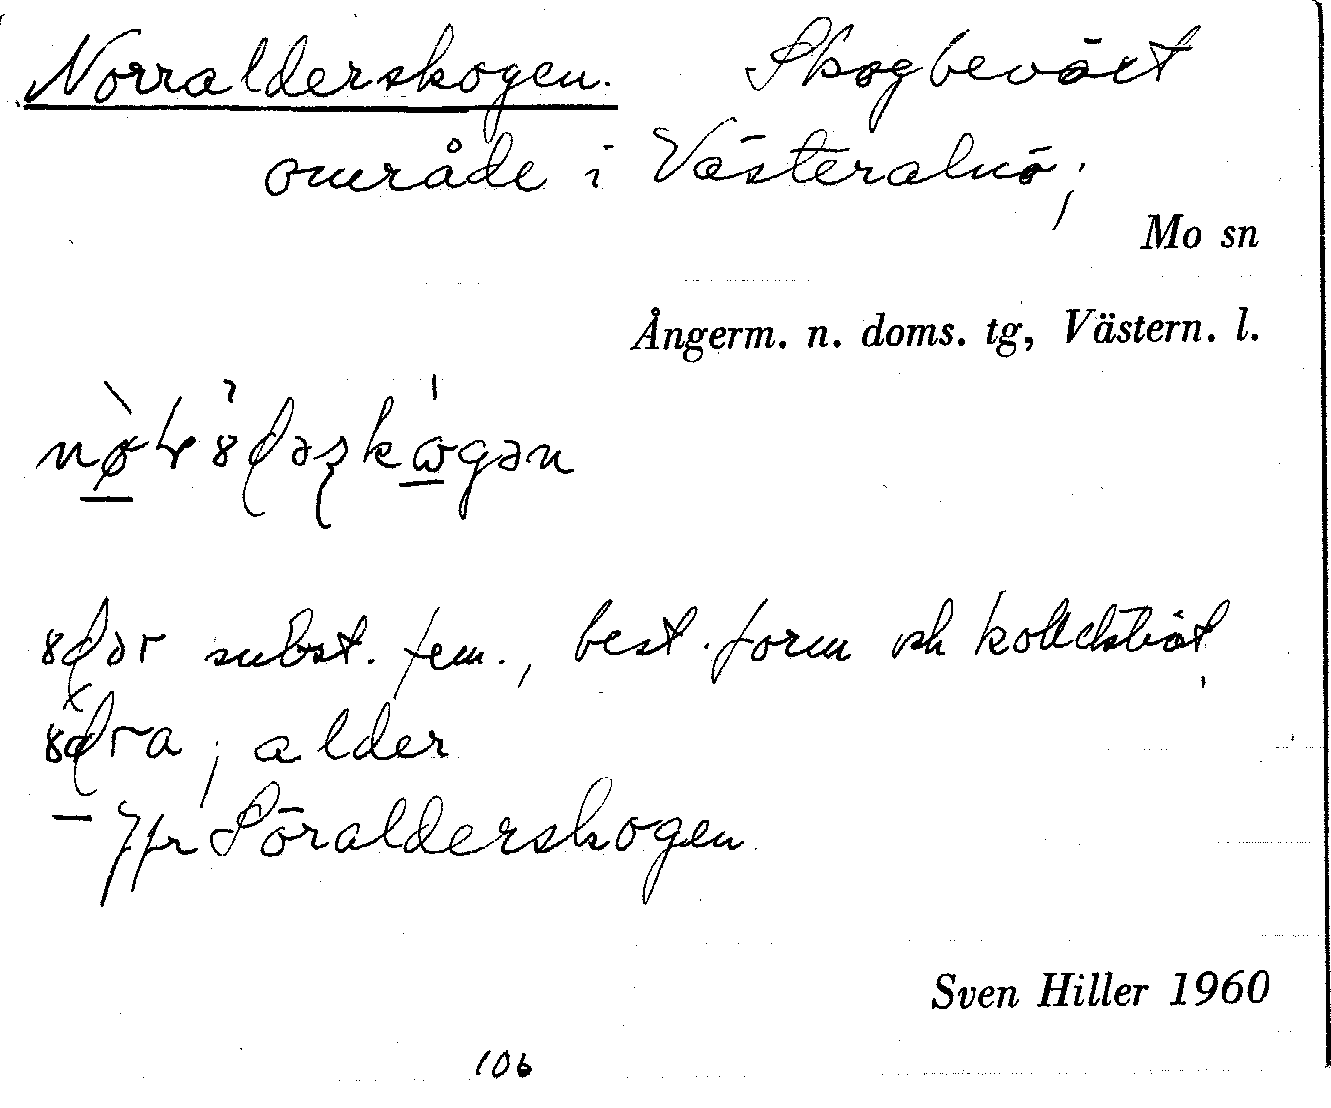 Norralderskogen. Skogbeväxt
område i Västeralnö;
Mo sn
Ångerm. n. doms. tg, Västern. l.
subst. fem., best. form och kollektivt,
alder
— Jfr Söralderskogen
Sven Hiller 1960
106